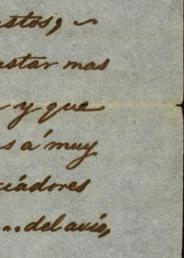 astos,
astar mas
y que
s á muy
ciádores
...del avío,